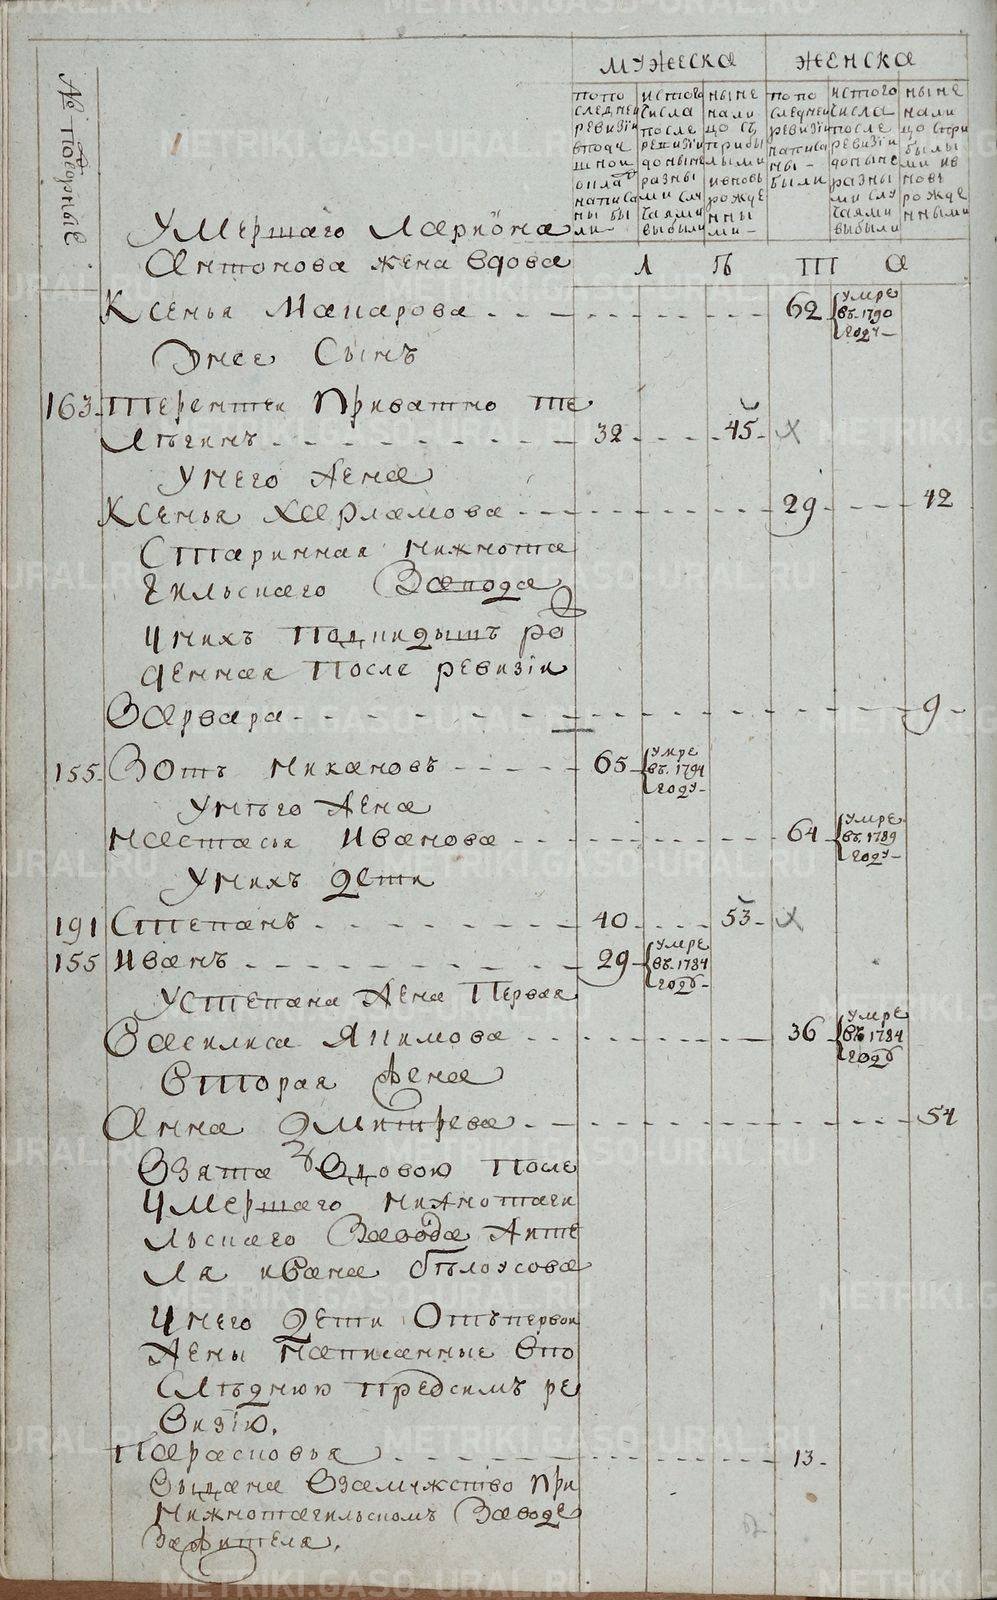 мужеска женска
№ подворные
попо следней ревизiи вподушной окладъ написаны были
истого числа после ревизiи доныне разными случаями выбыли
ныне налицо съ прибылыми ивновь рожденными
попо следней ревизiи написаны были
истого числа после ревизiи доныне разными случаями выбыли
ныне налицо сприбылыми ивновь рожденными
умершаго Ларiона
Антонова жена вдова Л Ѣ Т А
Ксенья Макарова 62 умре въ 1790 году
Унее Сынъ
163 Терентеи Приватно те
лѣгинъ 32 45 х
Унего жена
Ксенья Харламова 29 42
Старинная нижнота
гильскаго Завода
Унихъ Подкидышъ ро
денная После ревизiи
Варвара 9
155 Вотъ Никановъ 65 умре въ 1794 году
Унѣго жена
Настасья Иванова 64 умре въ 1789 году
Унихъ дети
191 Степанъ 40 53 х
155 Иванъ 29 умре въ 1784 годѣ
УСтепана жена Первая
Василиса Якимова 36 умре въ 1784 годѣ
Вторая жена
Анна Дмитрева 54
Взята Вдовою После
Умершаго нижнотаги
льскаго Завода жите
ля ивана бѣлоусова
Унего Дети Отъпервои
жены написанные впо
слѣднюю предсимъ ре
визiю.
Парасковья 13
Выдана Взамужство При
Нижнотагильскомъ Заводе
Зажителя.
METRIKI.GASO-URAL.RU